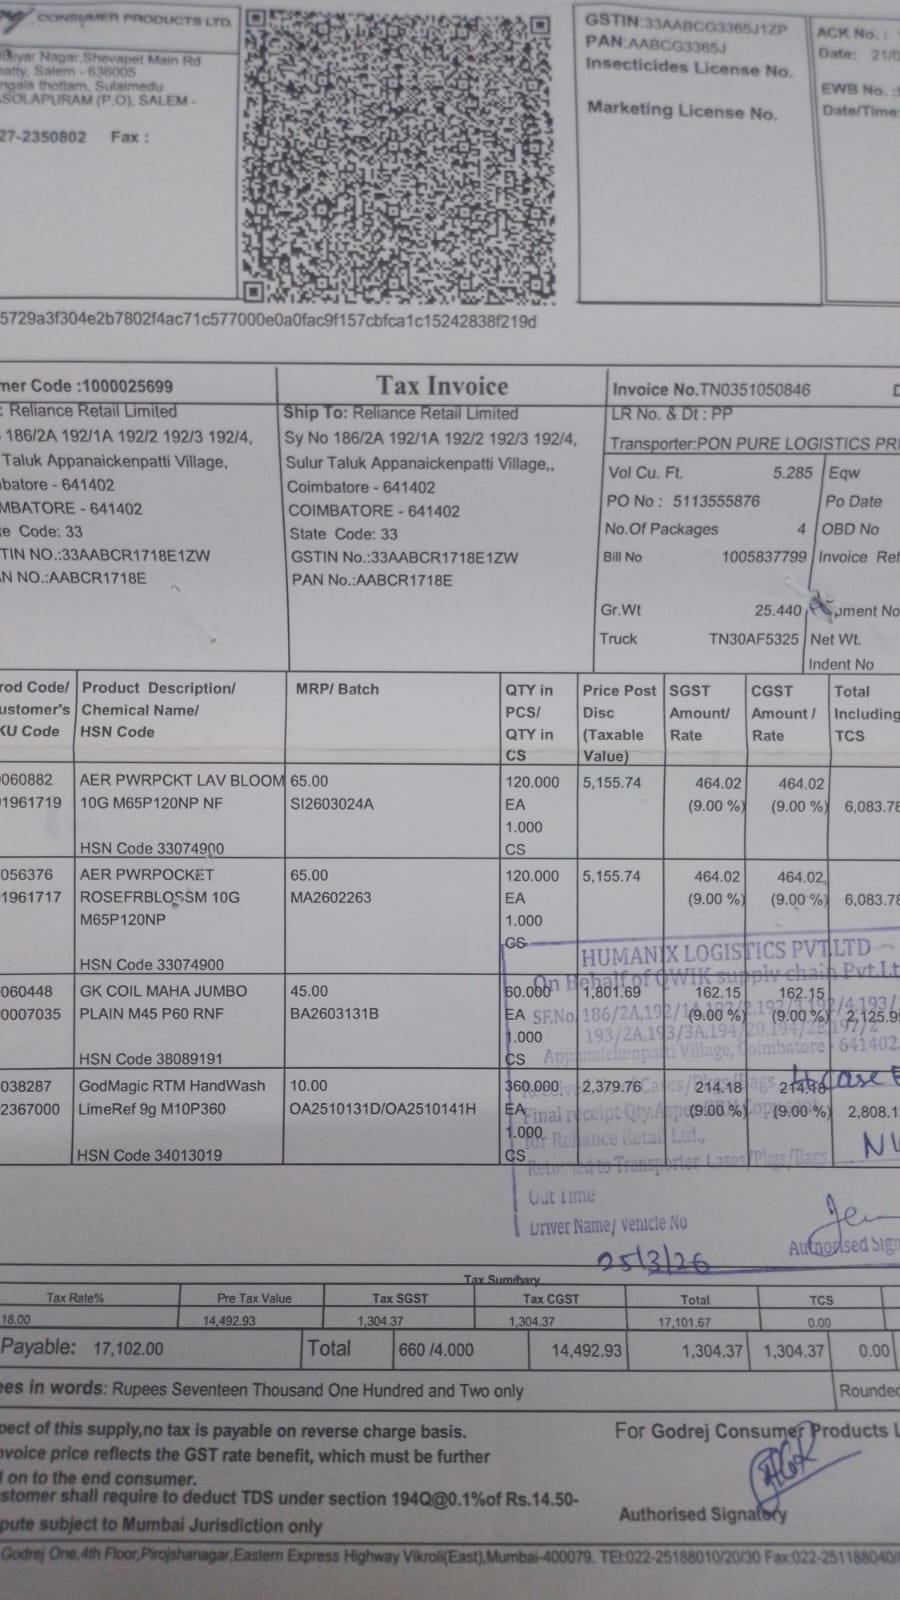 CONSUMER PRODUCTS LTD.
Nagar,Shevapet Main Rd
Salem - 636005
thottam, Sulaimedu
(P.O), SALEM -
27-2350802 Fax :
GSTIN:33AABCG3365J1ZP
PAN:AABCG3365J
Insecticides License No.
Marketing License No.
ACK No. :
Date: 21/0
EWB No. :
Date/Time
5729a3f304e2b7802f4ac71c577000e0a0fac9f157cbfca1c15242838f219d
mer Code :1000025699
Tax Invoice
Invoice No.TN0351050846
: Reliance Retail Limited
186/2A 192/1A 192/2 192/3 192/4,
Taluk Appanaickenpatti Village,
batore - 641402
MBATORE - 641402
e Code: 33
TIN NO.:33AABCR1718E1ZW
N NO.:AABCR1718E
Ship To: Reliance Retail Limited
Sy No 186/2A 192/1A 192/2 192/3 192/4,
Sulur Taluk Appanaickenpatti Village,,
Coimbatore - 641402
COIMBATORE - 641402
State Code: 33
GSTIN No.:33AABCR1718E1ZW
PAN No.:AABCR1718E
LR No. & Dt : PP
Transporter:PON PURE LOGISTICS PRI
Vol Cu. Ft. 5.285 Eqw
PO No : 5113555876 Po Date
No.Of Packages 4 OBD No
Bill No 1005837799 Invoice Ref
Gr.Wt 25.440 pment No
Truck TN30AF5325 Net Wt.
Indent No
rod Code/ Product Description/ MRP/ Batch QTY in Price Post SGST CGST Total
ustomer's Chemical Name/ PCS/ Disc Amount/ Amount / Including
KU Code HSN Code QTY in (Taxable Rate Rate TCS
CS Value)
060882 AER PWRPCKT LAV BLOOM 65.00 120.000 5,155.74 464.02 464.02
1961719 10G M65P120NP NF SI2603024A EA (9.00 %) (9.00 %) 6,083.78
1.000
HSN Code 33074900 CS
056376 AER PWRPOCKET 65.00 120.000 5,155.74 464.02 464.02
1961717 ROSEFRBLOSSM 10G MA2602263 EA (9.00 %) (9.00 %) 6,083.78
M65P120NP 1.000
CS
HSN Code 33074900
060448 GK COIL MAHA JUMBO 45.00 60.000 1,801.69 162.15 162.15
0007035 PLAIN M45 P60 RNF BA2603131B EA (9.00 %) (9.00 %) 2,125.9
1.000
HSN Code 38089191 CS
038287 GodMagic RTM HandWash 10.00 360.000 2,379.76 214.18 214.18
2367000 LimeRef 9g M10P360 OA2510131D/OA2510141H EA (9.00 %) (9.00 %) 2,808.1
1.000
HSN Code 34013019 CS
HUMANIX LOGISTICS PVT.LTD
On Behalf of QWIK supply chain Pvt.Lt
SF.No.186/2A,192/1A,192/2,192/3,192/4,193/
193/2A,193/3A,194/
Appanaickenpatti Village, Coimbatore - 641402
Cases/Pkgs/Bags
Final receipt Qty.As per GRN Copy
for Reliance Retail Ltd.,
Returned to Transporter Cases/Pkgs/Bags
Out Time
Driver Name/ Vehicle No
Authorised Sign
25/3/26
Tax Summary
Tax Rate% Pre Tax Value Tax SGST Tax CGST Total TCS
18.00 14,492.93 1,304.37 1,304.37 17,101.67 0.00
Payable: 17,102.00 Total 660 /4.000 14,492.93 1,304.37 1,304.37 0.00
ees in words: Rupees Seventeen Thousand One Hundred and Two only Rounded
pect of this supply,no tax is payable on reverse charge basis.
nvoice price reflects the GST rate benefit, which must be further
on to the end consumer.
stomer shall require to deduct TDS under section 194Q@0.1%of Rs.14.50-
pute subject to Mumbai Jurisdiction only
For Godrej Consumer Products L
Authorised Signatory
Godrej One,4th Floor,Pirojshanagar,Eastern Express Highway Vikroli(East),Mumbai-400079. TEl:022-25188010/20/30 Fax:022-251188040/